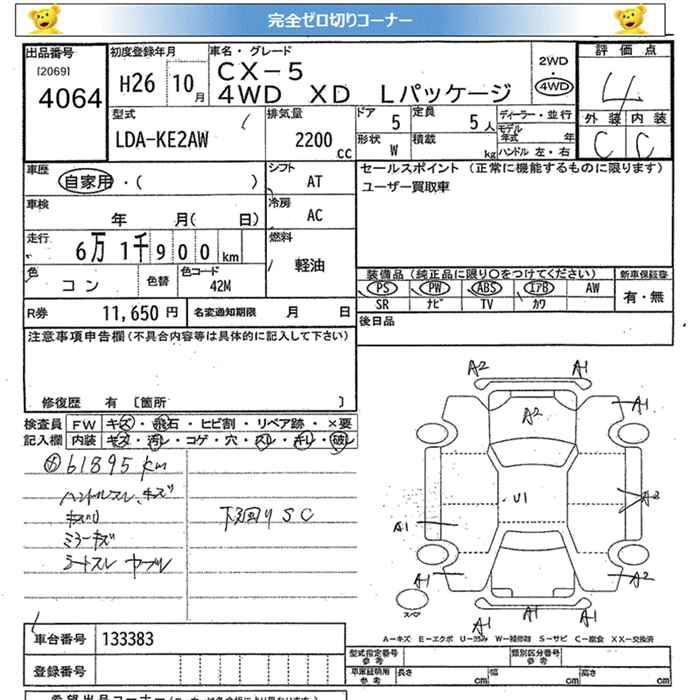 完全ゼロ切りコーナー
出品番号 初度登録年月 車名・グレード 評価点
[2069] 4064 H26 10月 CX-5 2WD・4WD 4
4WD XD Lパッケージ
型式 排気量 ドア 定員 ディーラー・並行 外装 内装
LDA-KE2AW 2200cc 5 5人 モデル年式 年 C C
形状 W 積載 kg ハンドル 左・右
車歴 シフト セールスポイント (正常に機能するものに限ります)
自家用・( ) AT ユーザー買取車
車検 冷房
年 月( 日) AC
走行 燃料
6万1千900km 軽油
色 色替 色コード 装備品 (純正品に限り〇をつけてください) 新車保証書
コン 42M PS PW ABS エアB AW 有・無
SR ナビ TV カワ
R券 11,650円 名変通知期限 月 日 後日品
注意事項申告欄 (不具合内容等は具体的に記入して下さい)
修復歴 有 [箇所 ]
検査員 FW キズ・飛石・ヒビ割・リペア跡・×要
記入欄 内装 キズ・汚レ・コゲ・穴・スレ・キレ・破レ
61895 km
ハンドルスレ、キズ
下回り SC
ミラーキズ
シートスレ ヤブレ
A2 A1
A2 A1 A1
U1 A2
A1
A1 A2
スペア
A1 A1 A1
A-キズ E-エクボ U-凹み W-補修跡 S-サビ C-腐食 XX-交換済
車台番号 133383
登録番号
型式指定番号 参考 類別区分番号 参考
車庫証明用 参考 長さ cm 幅 cm 高さ cm
希望出品コーナー